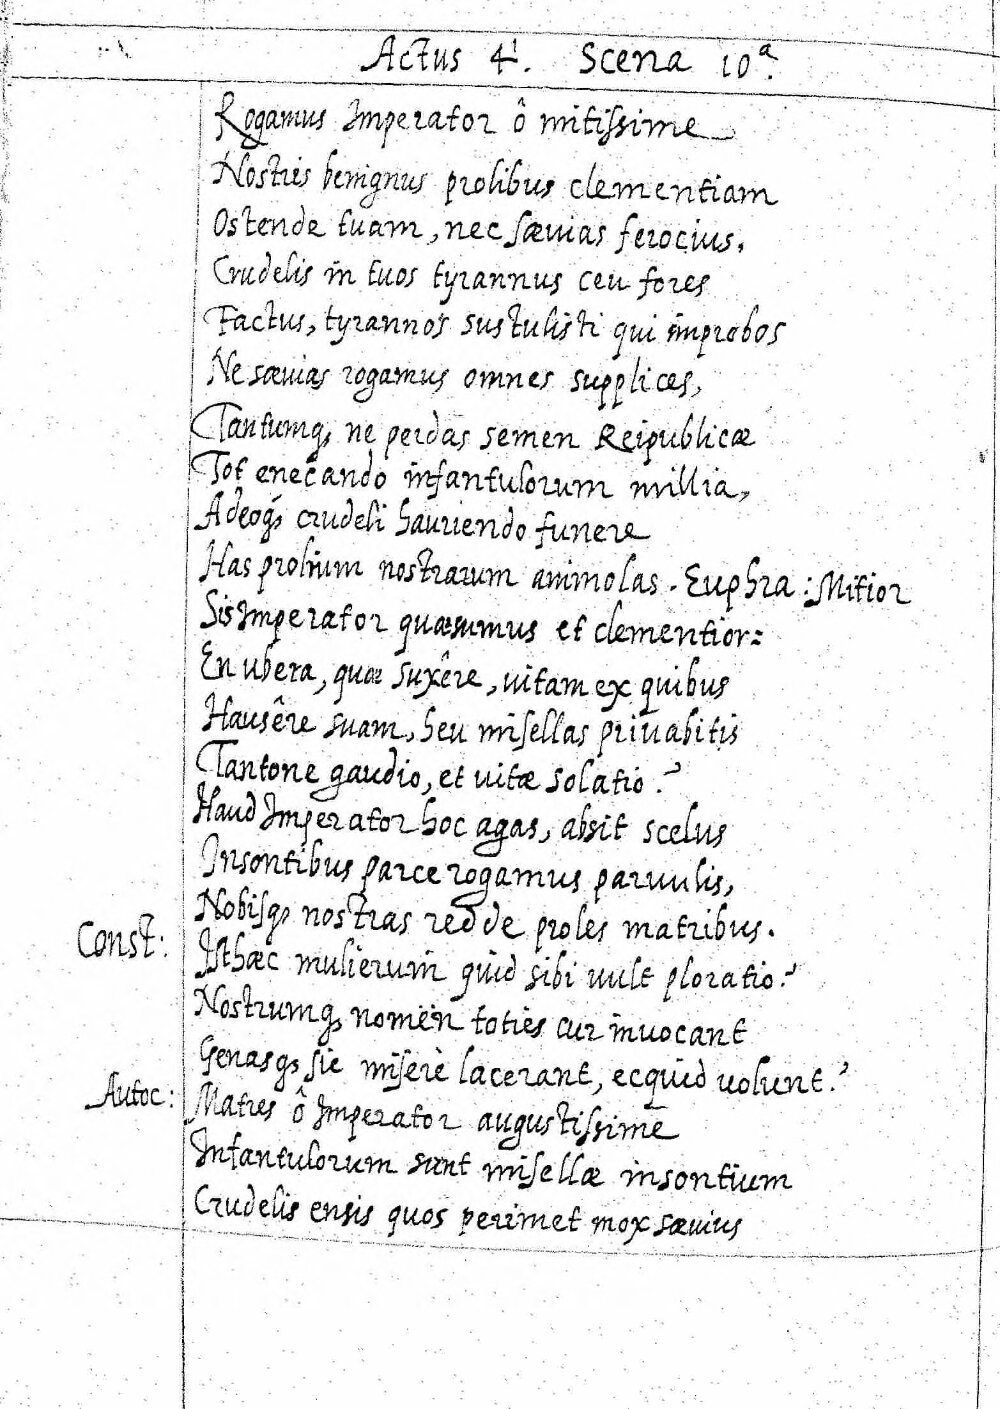 Actus 4ⁱ. Scena 10ᵃ.
Rogamus Imperator ô mitißime
Nostris benignus prolibus clementiam
Ostende tuam, nec sæuias ferocius.
Crudelis in tuos tyrannus ceu fores
Factus, tyrannos sustulisti qui improbos
Ne sæuias rogamus omnes supplices,
Tantumq, ne perdas semen Reipublicæ
Tot enecando infantulorum millia,
Adeoq́, crudeli hauriendo funere
Has prolium nostrarum animolas. Euphra: Mitior
Sis Imperator quæsumus et clementior:
En ubera, quæ suxêre, uitam ex quibus
Hausêre suam, heu misellas priuabitis
Tantone gaudio, et uitæ solatio?
Haud Imperator hoc agas, absit scelus
Insontibus parce rogamus paruulis,
Nobisq, nostras redde proles matribus.
Const: Isthæc mulierum quid sibi uult ploratio?
Nostrumq, nomen toties cur inuocant
Genasq, sic miserè lacerant, ecquid uolunt?
Autoc: Matres ô Imperator augustißime
Infantulorum sunt misellæ insontium
Crudelis ensis quos perimet mox sæuius